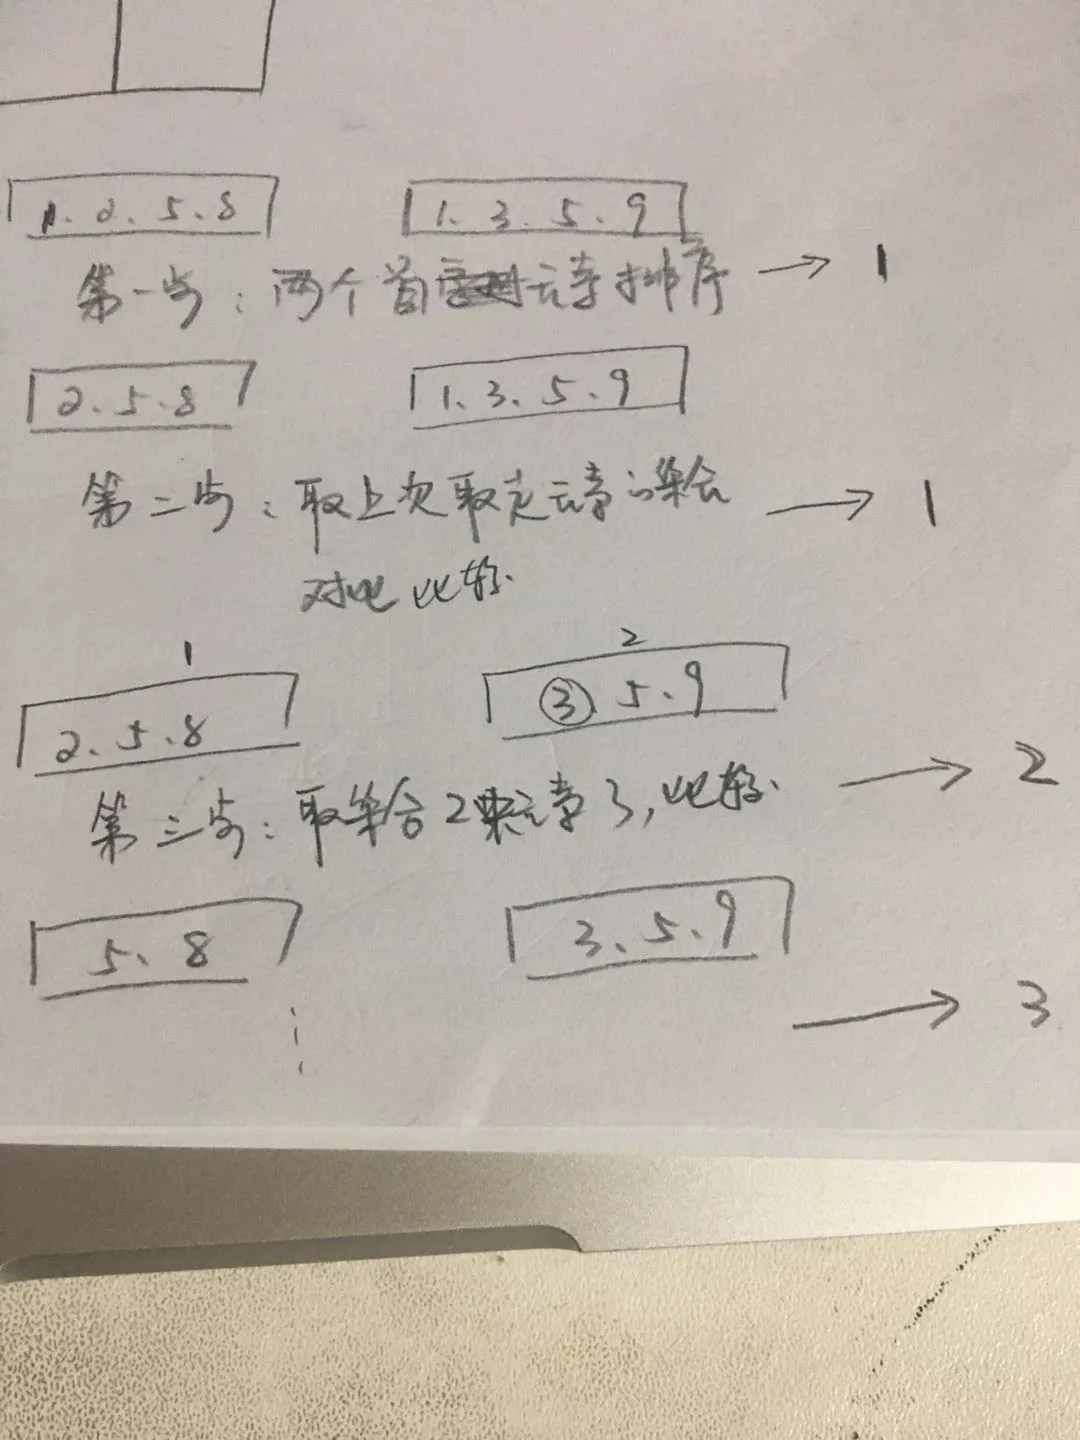 1. 2. 5. 8
1. 3. 5. 9
第一步: 两个首元素排序 → 1
2. 5. 8
1. 3. 5. 9
第二步: 取上次取走元素的集合 → 1
对比比较.
1
2
2. 5. 8
③. 5. 9
第三步: 取集合2 元素3, 比较. → 2
5、8
3、5、9
→ 3